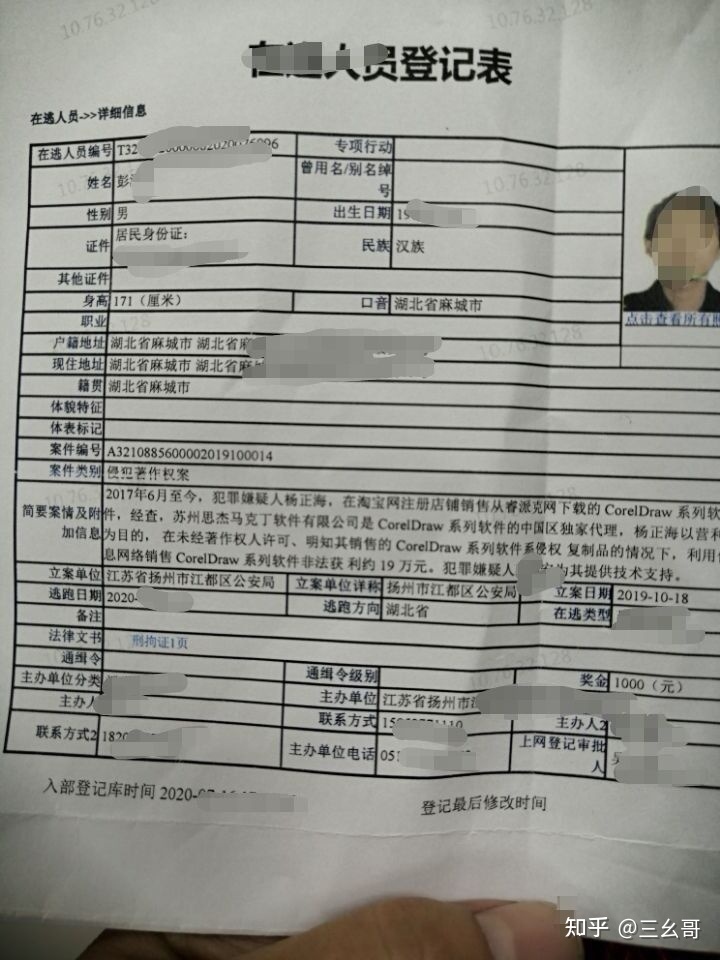 10.76.32.128
在逃人员登记表
在逃人员->>详细信息
在逃人员编号 T32 6096 专项行动
姓名 彭 曾用名/别名绰号
性别 男 出生日期 19
证件 居民身份证: 民族 汉族
10.76.32.128
其他证件
身高 171（厘米） 口音 湖北省麻城市
点击查看所有照
职业
户籍地址 湖北省麻城市 湖北省麻
现住地址 湖北省麻城市 湖北省麻
籍贯 湖北省麻城市
体貌特征
体表标记
案件编号 A3210885600002019100014
案件类别 侵犯著作权案
简要案情及附加信息 2017年6月至今，犯罪嫌疑人杨正海，在淘宝网注册店铺销售从睿派克网下载的 CorelDraw 系列软
件，经查，苏州思杰马克丁软件有限公司是 CorelDraw 系列软件的中国区独家代理，杨正海以营利
为目的，在未经著作权人许可、明知其销售的 CorelDraw 系列软件系侵权 复制品的情况下，利用信
息网络销售 CorelDraw 系列软件非法获 利约 19 万元。犯罪嫌疑人 为其提供技术支持。
立案单位 江苏省扬州市江都区公安局 立案单位详称 扬州市江都区公安局 立案日期 2019-10-18
逃跑日期 2020- 逃跑方向 湖北省 在逃类型
备注
法律文书 刑拘证1页
通缉令 通缉令级别 奖金 1000（元）
主办单位分类 主办单位 江苏省扬州市江
主办人 联系方式 主办人2
联系方式2 1820 主办单位电话 051 上网登记审批人
入部登记库时间 2020- 登记最后修改时间
知乎 @三幺哥